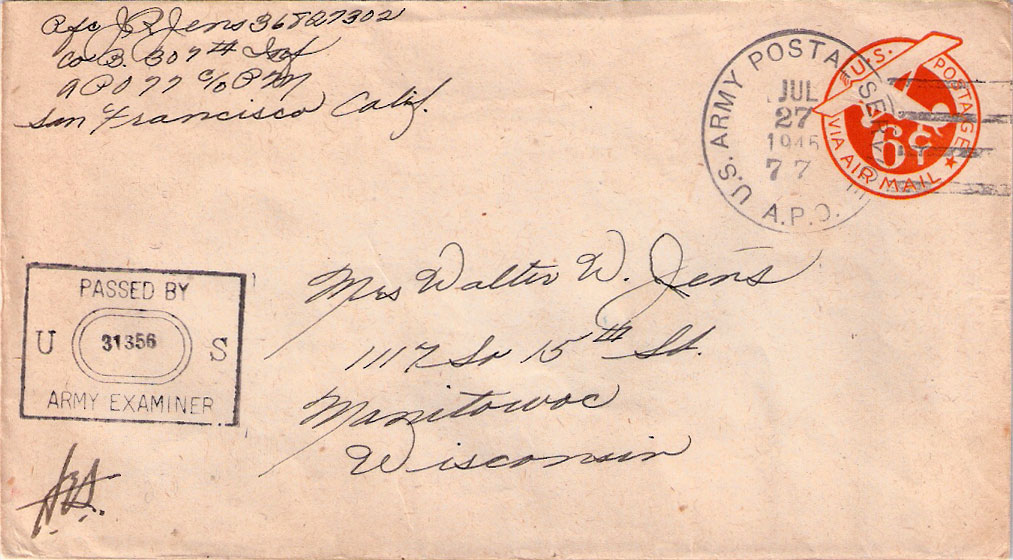 Pfc J. R. Jens 36827302
Co B. 307th Inf
APO 77 c/o PM
San Francisco Calif.
U.S. ARMY POSTAL SERVICE
JUL
27
1945
77
A.P.O.
U.S. POSTAGE
6¢
VIA AIR MAIL
PASSED BY
U 31356 S
ARMY EXAMINER
Mrs Walter W. Jens
1117 So 15th St.
Manitowoc
Wisconsin